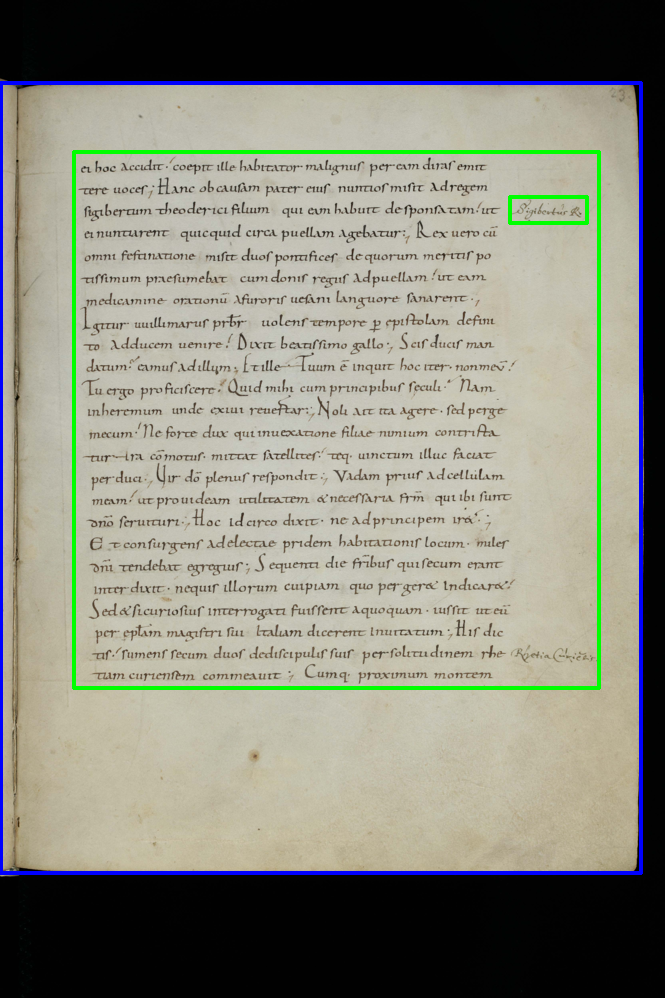 23
ei hoc accidit; coepit ille habitator malignus per eam diras emit
tere uoces; Hanc ob causam pater eius nuntios misit ad regem
sigibertum theoderici filium qui eam habuit desponsatam; ut
Sigibertus R.
ei nuntiarent quicquid circa puellam agebatur; Rex uero cū
omni festinatione misit duos pontifices de quorum meritis po
tissimum praesumebat cum donis regiis ad puellam; ut eam
medicamine orationū a furoris uesani languore sanarent;
Igitur uuillimarus prb̄r uolens tempore ꝑ epistolam defini
to adducem uenire; Dixit beatissimo gallo; Scis ducis man
datum; eamus ad illum; Et ille Tuum ē inquit hoc iter · non meū;
Tu ergo proficiscere; Quid mihi cum principibus seculi; Nam
in heremum unde exiui reuertar; Noli ait ita agere · sed perge
mecum; Ne forte dux qui in uexatione filiae nimium contrista
tur ira cōmotus · mittat satellites; teq· uinctum illuc faciat
perduci; Uir dō plenus respondit; Vadam prius ad cellulam
meam; ut prouideam utilitatem & necessaria frm̄ qui ibi sunt
dn̄o seruituri; Hoc idcirco dixit · ne ad principem ir&;
Et consurgens ad electae pridem habitationis locum · miles
dn̄i tendebat egregius; Sequenti die fr̄ibus qui secum erant
interdixit · nequis illorum cuipiam quo perger& indicar&;
Sed & si curiosius interrogati fuissent a quoquam · iussit ut eū
per epl̄am magistri sui Italiam dicerent inuitatum; His dic
tis; sumens secum duos de discipulis suis per solitudinem rhe
tiam curiensem commeauit; Cumq· proximum montem